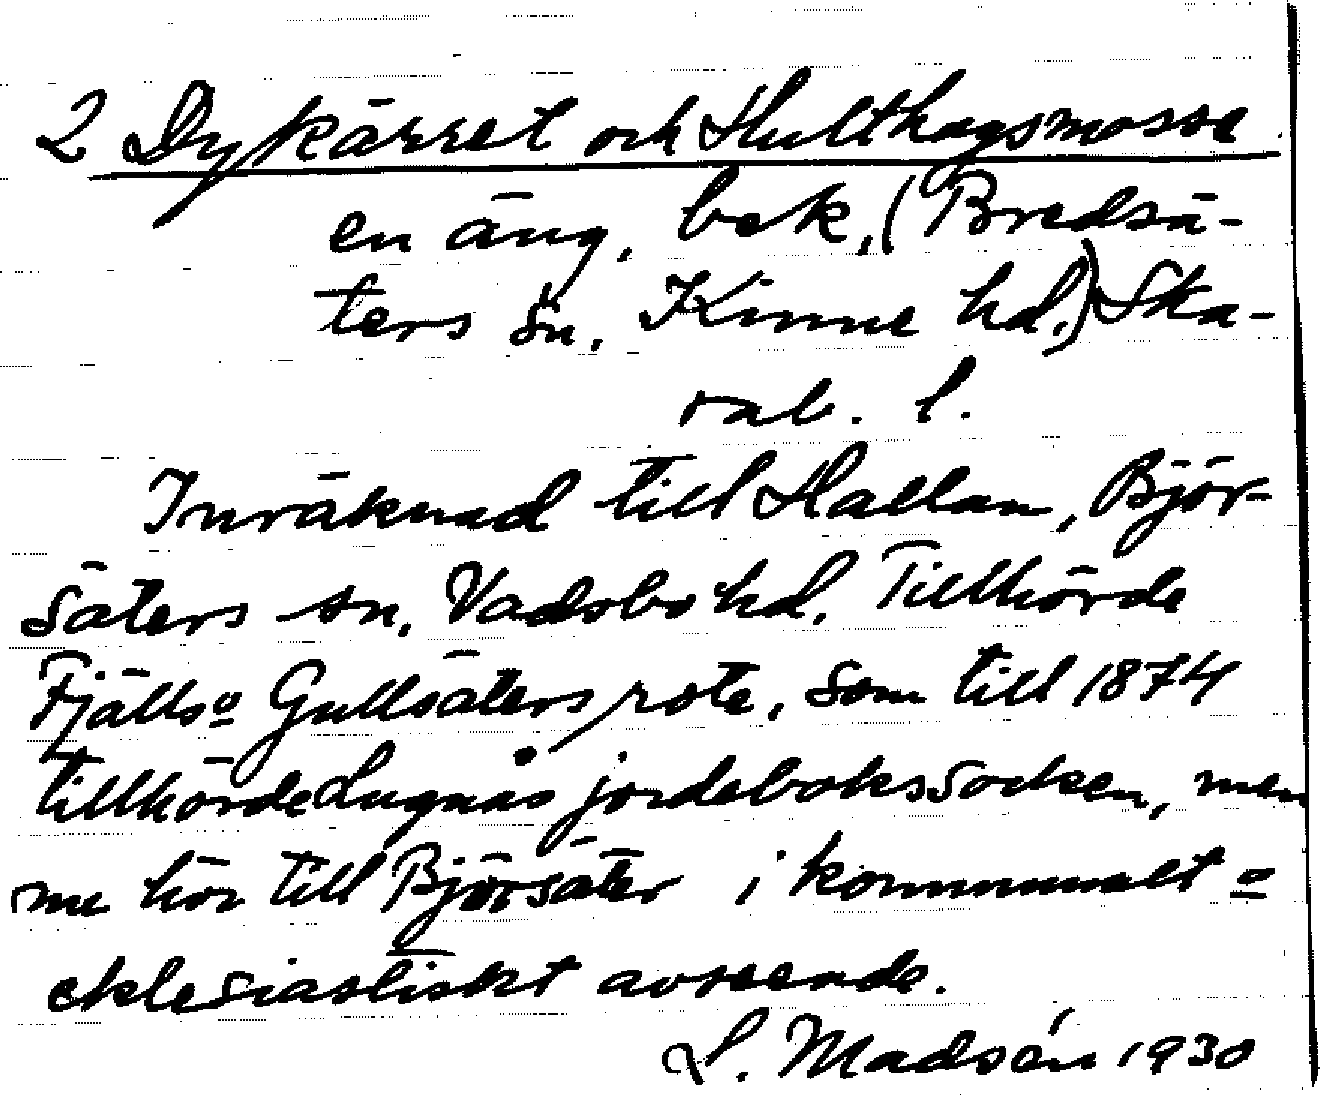 2 Dykärret och Hulthagsmosse
en äng, bek, (Bredsä-
ters sn. Kinne hd.) Ska-
rab. l.
Inräknad till Hallan, Björ-
säters sn, Vadsbo hd. Tillhörde
Fjälls o Gullsäters rote, som till 1874
tillhörde Lugnås jordebokssocken, men
nu hör till Björsäter i kommunalt o
eklesiastiskt avseende.
S. Madsén 1930